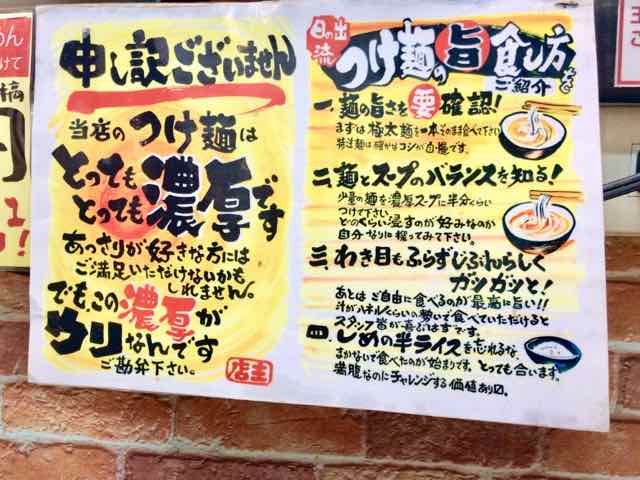 申し訳ございません
当店のつけ麺は
とっても
とっても濃厚です
あっさりが好きな方には
ご満足いただけないかも
しれません。
でも、この濃厚が
ウリなんです
ご勘弁下さい。
店主
日の出
流
つけ麺の旨食し方
ご紹介
一、麺の旨さを要確認!
まずは極太麺を一本そのまま食べて下さい
特注麺は確かなコシが自慢です。
二、麺とスープのバランスを知る!
少量の麺を濃厚スープに半分くらい
つけて下さい。
どのくらい浸すのが好みなのか
自分なりに探ってみて下さい。
三、わき目もふらずじぶんらしく
ガツガツと!
あとはご自由に食べるのが最高に旨い!!
汁がハネルくらいの勢いで食べていただけると
スタッフ皆が喜ぶはずです。
四、しめの半ライスを忘れるな、
まかないで食べたのが始まりです。とっても合います。
満腹なのにチャレンジする価値あり